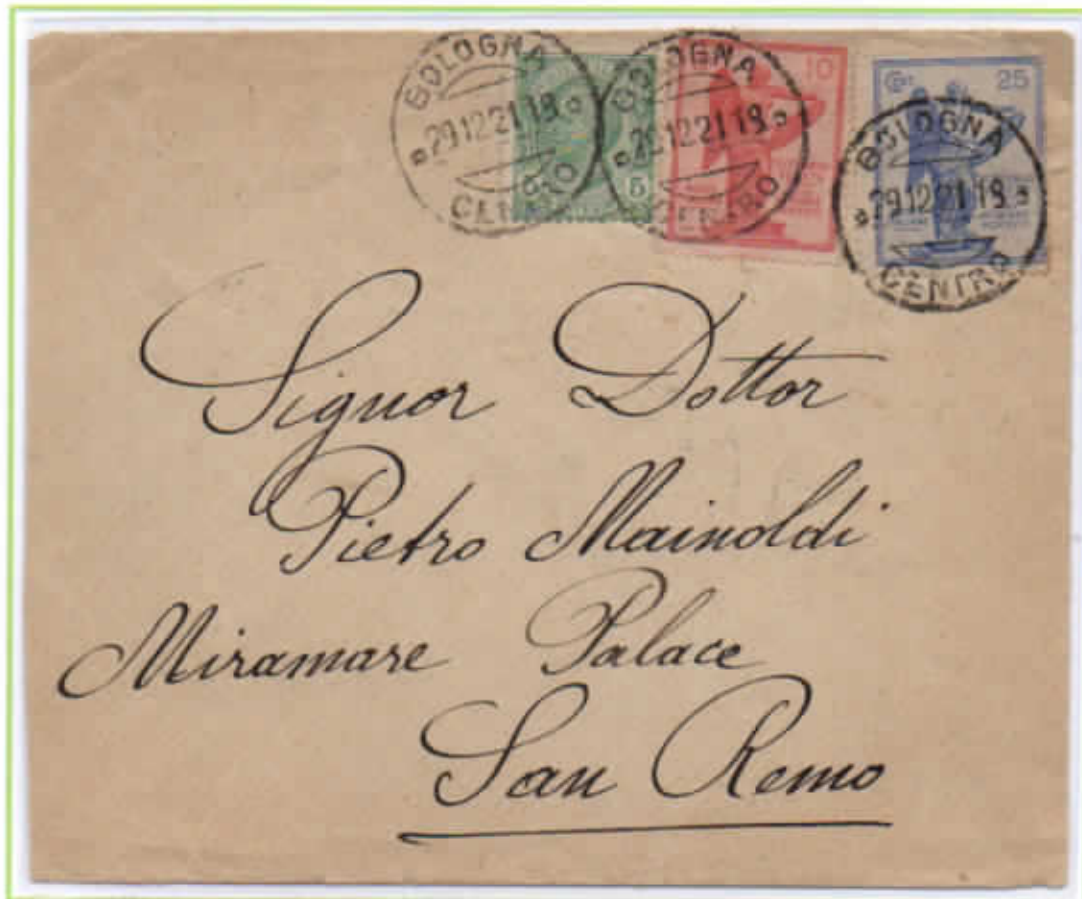 BOLOGNA
29.12.21.18
CENTRO
BOLOGNA
29.12.21.18
CENTRO
BOLOGNA
29.12.21.18
CENTRO
5
10
25
Signor Dottor
Pietro Mainoldi
Miramare Palace
San Remo